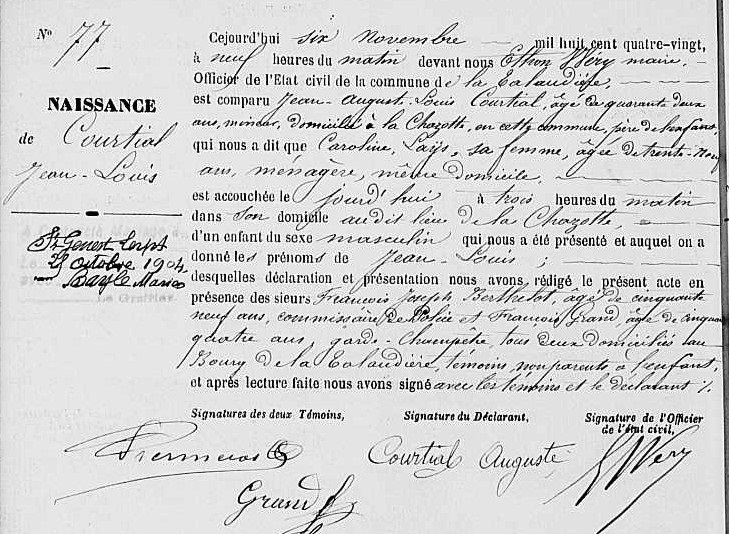 N° 77
NAISSANCE
de Courtial
Jean-Louis
St Genest Lerpt
octobre 1904
Bayle Maria
Cejourd'hui six Novembre — mil huit cent quatre-vingt,
à neuf heures du matin devant nous Ethon Wéry maire,
Officier de l'Etat civil de la commune de la Talaudière,
est comparu Jean-Auguste-Louis Courtial, âgé de quarante deux
ans, mineur, domicilié à la Chazotte, en cette commune, père de l'enfant,
qui nous a dit que Caroline, sa femme, âgée de trente-neuf
ans, ménagère, même domicile,
est accouchée le jourd'hui à trois heures du matin
dans son domicile audit lieu de la Chazotte,
d'un enfant du sexe masculin qui nous a été présenté et auquel on a
donné les prénoms de Jean-Louis;
desquelles déclaration et présentation nous avons rédigé le présent acte en
présence des sieurs François Joseph Berthelot, âgé de cinquante
neuf ans, commissaire de Police et François Grand, âgé de cinquante
quatre ans, garde-Champêtre, tous deux domiciliés au
Bourg de la Talaudière, témoins non parents à l'enfant,
et après lecture faite nous avons signé avec les témoins et le déclarant %.
Signatures des deux Témoins, Signature du Déclarant, Signature de l'Officier
de l'état civil,
Courtial Auguste
Wéry
Grand